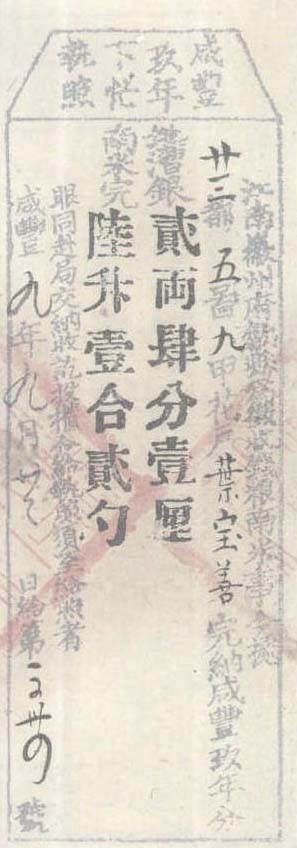 咸豐
玖年
下忙
執照
江南徽州府歙縣為徵收錢糧南米事今據
廿三都五啚九甲花戶葉宝善完納咸豐玖年分
地漕銀貳兩肆分壹厘
南米完陸升壹合貳勺
眼同赴局交納收訖投櫃合給執照須至給照者
咸豐九年九月廿 日給第 号